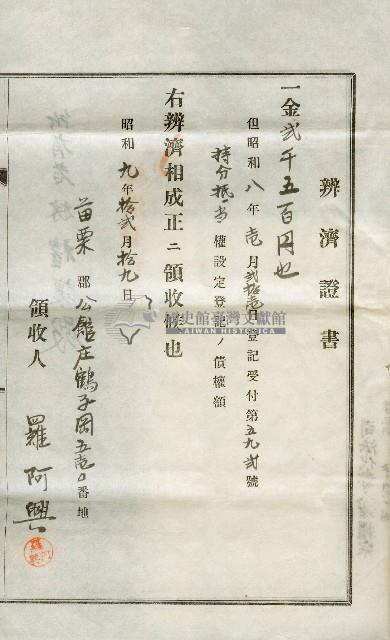 辨濟證書
一金弐千五百円也
但昭和八年壱月弐拾壱日登記受付第五九弐號
持分抵當權設定登記ノ債權額
右辨濟相成正ニ領收候也
昭和九年拾弐月拾九日
苗栗郡公館庄鶴子岡五壱〇番地
領收人 羅阿興
國史館臺灣文獻館
TAIWAN HISTORICA